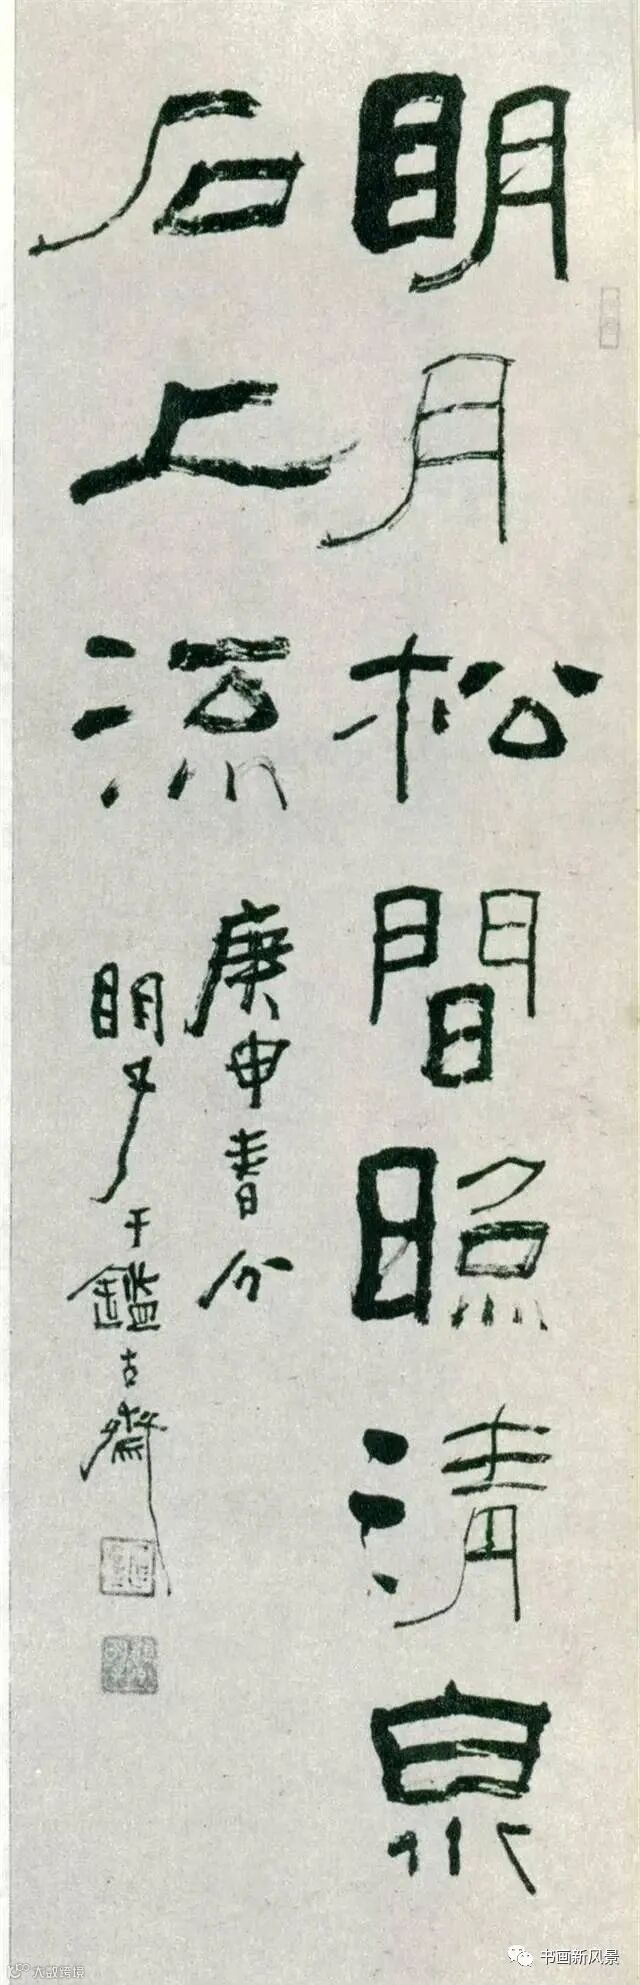 明月松間照清泉
石上流
庚申春分
明子于鑑古齋
书画新风景
大数跨境